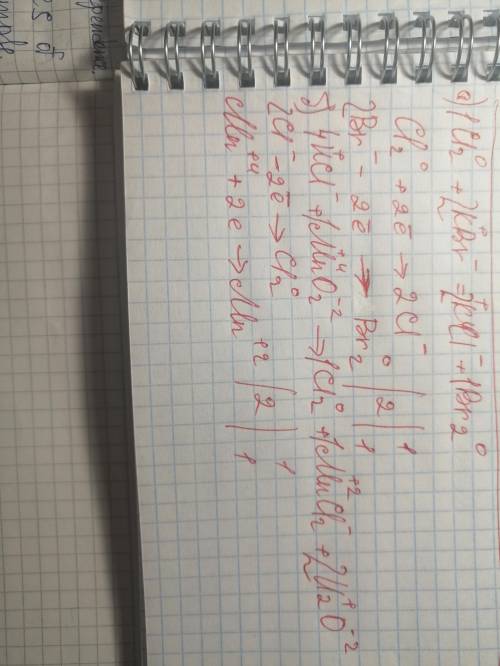 а) 1Cl₂⁰ + 2K⁺Br⁻ = 2K⁺Cl⁻ + 1Br₂⁰
Cl₂⁰ + 2ē → 2Cl⁻ | | 1
2Br⁻ - 2ē → Br₂⁰ | 2 | 1
б) 4H⁺Cl⁻ + 1Mn⁺⁴O₂⁻² → 1Cl₂⁰ + 1Mn⁺²Cl₂⁻ + 2H₂⁺O⁻²
2Cl⁻ - 2ē → Cl₂⁰ | | 1
Mn⁺⁴ + 2ē → Mn⁺² | 2 | 1